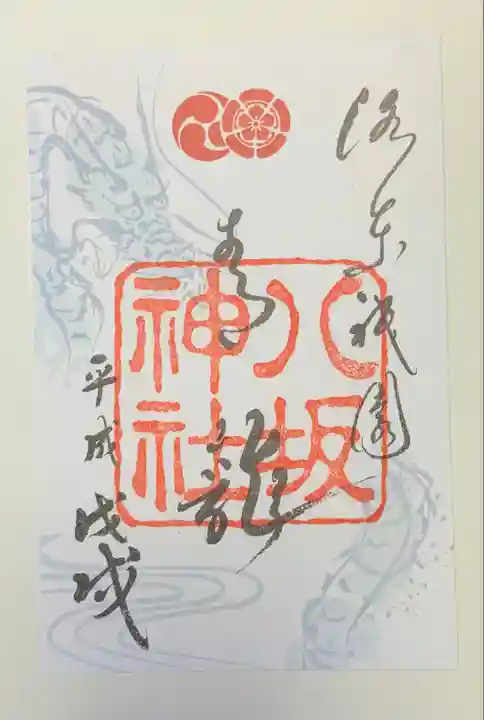 洛東祇園
八坂
神社
青龍
平成戊戌